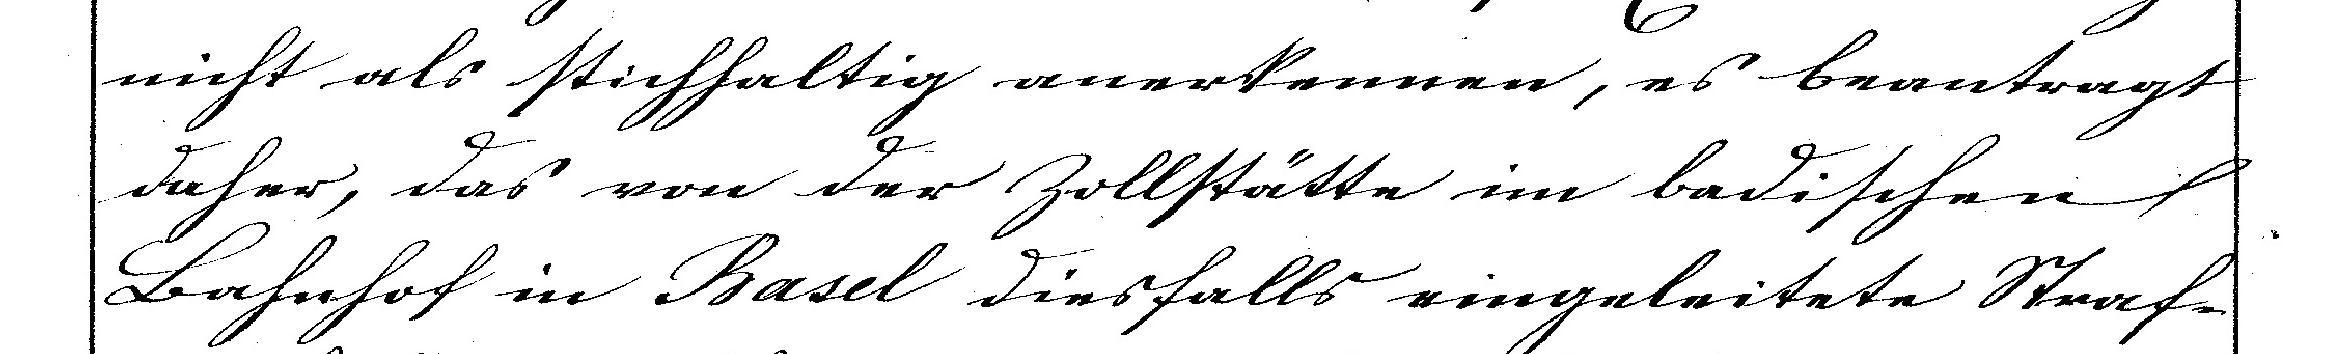 nicht als stichhaltig anerkennen, es beantragt
daher, das von der Zollstätte im badischen
Bahnhof in Basel diesfalls eingeleitete Straf-